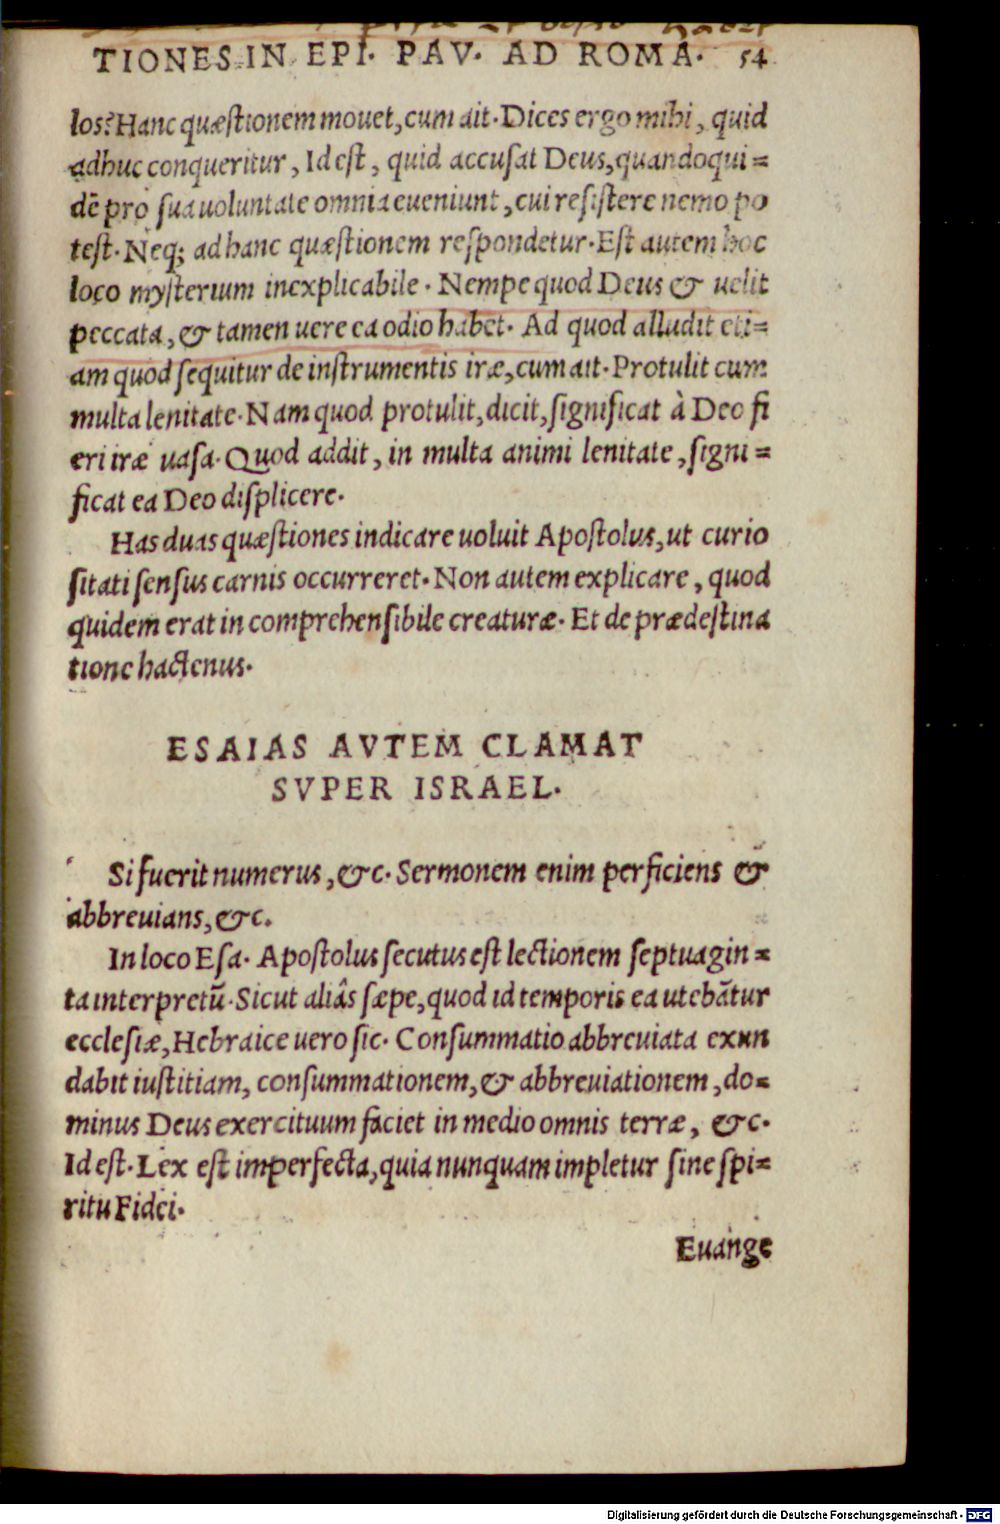 TIONES IN EPI. PAV. AD ROMA. 54
los? Hanc quæstionem mouet, cum ait. Dices ergo mihi, quid
adhuc conqueritur, Id est, quid accusat Deus, quandoqui=
dẽ pro sua uoluntate omnia eueniunt, cui resistere nemo po
test. Neq; ad hanc quæstionem respondetur. Est autem hoc
loco mysterium inexplicabile. Nempe quod Deus & uelit
peccata, & tamen uere ea odio habet. Ad quod alludit eti=
am quod sequitur de instrumentis iræ, cum ait. Protulit cum
multa lenitate. Nam quod protulit, dicit, significat à Deo fi
eri iræ uasa. Quod addit, in multa animi lenitate, signi=
ficat ea Deo displicere.
Has duas quæstiones indicare uoluit Apostolus, ut curio
sitati sensus carnis occurreret. Non autem explicare, quod
quidem erat incomprehensibile creaturæ. Et de prædestina
tione hactenus.
ESAIAS AVTEM CLAMAT
SVPER ISRAEL.
Si fuerit numerus, &c. Sermonem enim perficiens &
abbreuians, &c.
In loco Esa. Apostolus secutus est lectionem septuagin=
ta interpretũ. Sicut aliâs sæpe, quod id temporis ea utebãtur
ecclesiæ, Hebraice uero sic. Consummatio abbreuiata exun
dabit iustitiam, consummationem, & abbreuiationem, do=
minus Deus exercituum faciet in medio omnis terræ, &c.
Id est. Lex est imperfecta, quia nunquam impletur sine spi=
ritu Fidei.
Euange
Digitalisierung gefördert durch die Deutsche Forschungsgemeinschaft - DFG